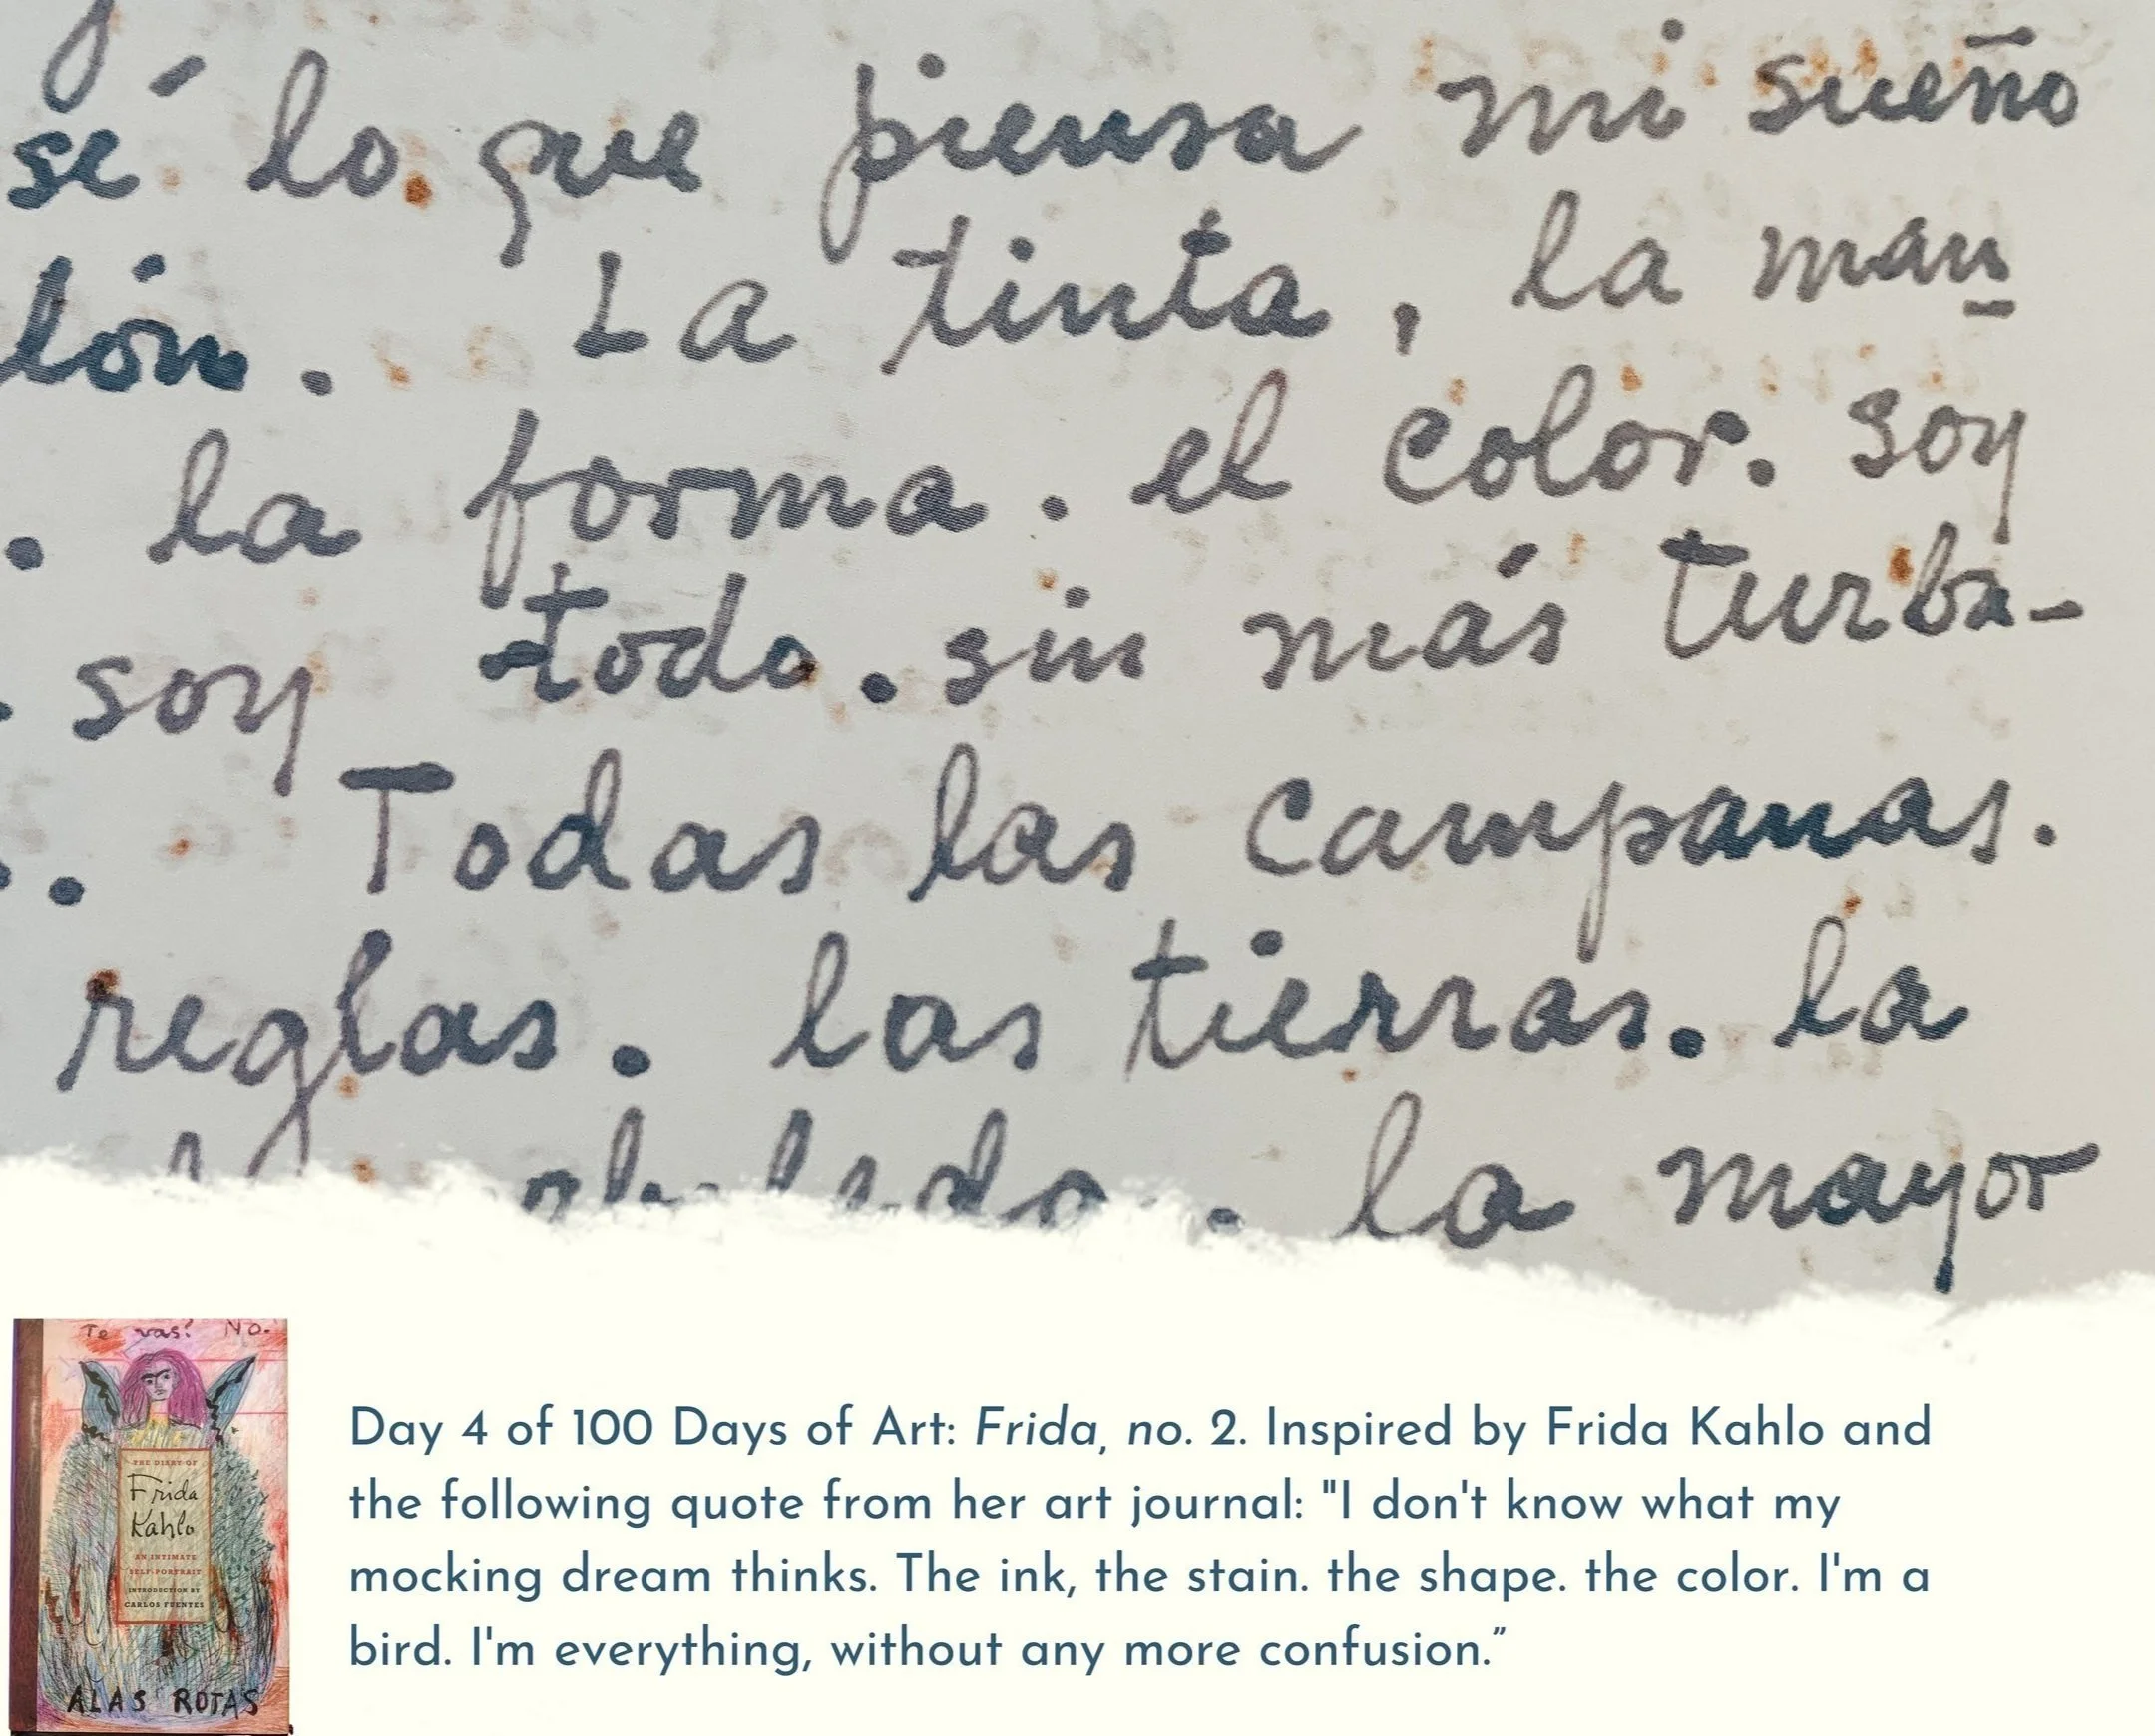 sé lo que piensa mi sueño
lón. La tinta, la man
. la forma. el color. soy
soy todo. sin más turba-
. Todas las campanas.
reglas. las tierras. la
la mayor
Te vas? No.
THE DIARY OF
Frida
Kahlo
AN INTIMATE
SELF-PORTRAIT
INTRODUCTION BY
CARLOS FUENTES
ALAS ROTAS
Day 4 of 100 Days of Art: Frida, no. 2. Inspired by Frida Kahlo and
the following quote from her art journal: "I don't know what my
mocking dream thinks. The ink, the stain. the shape. the color. I'm a
bird. I'm everything, without any more confusion.”